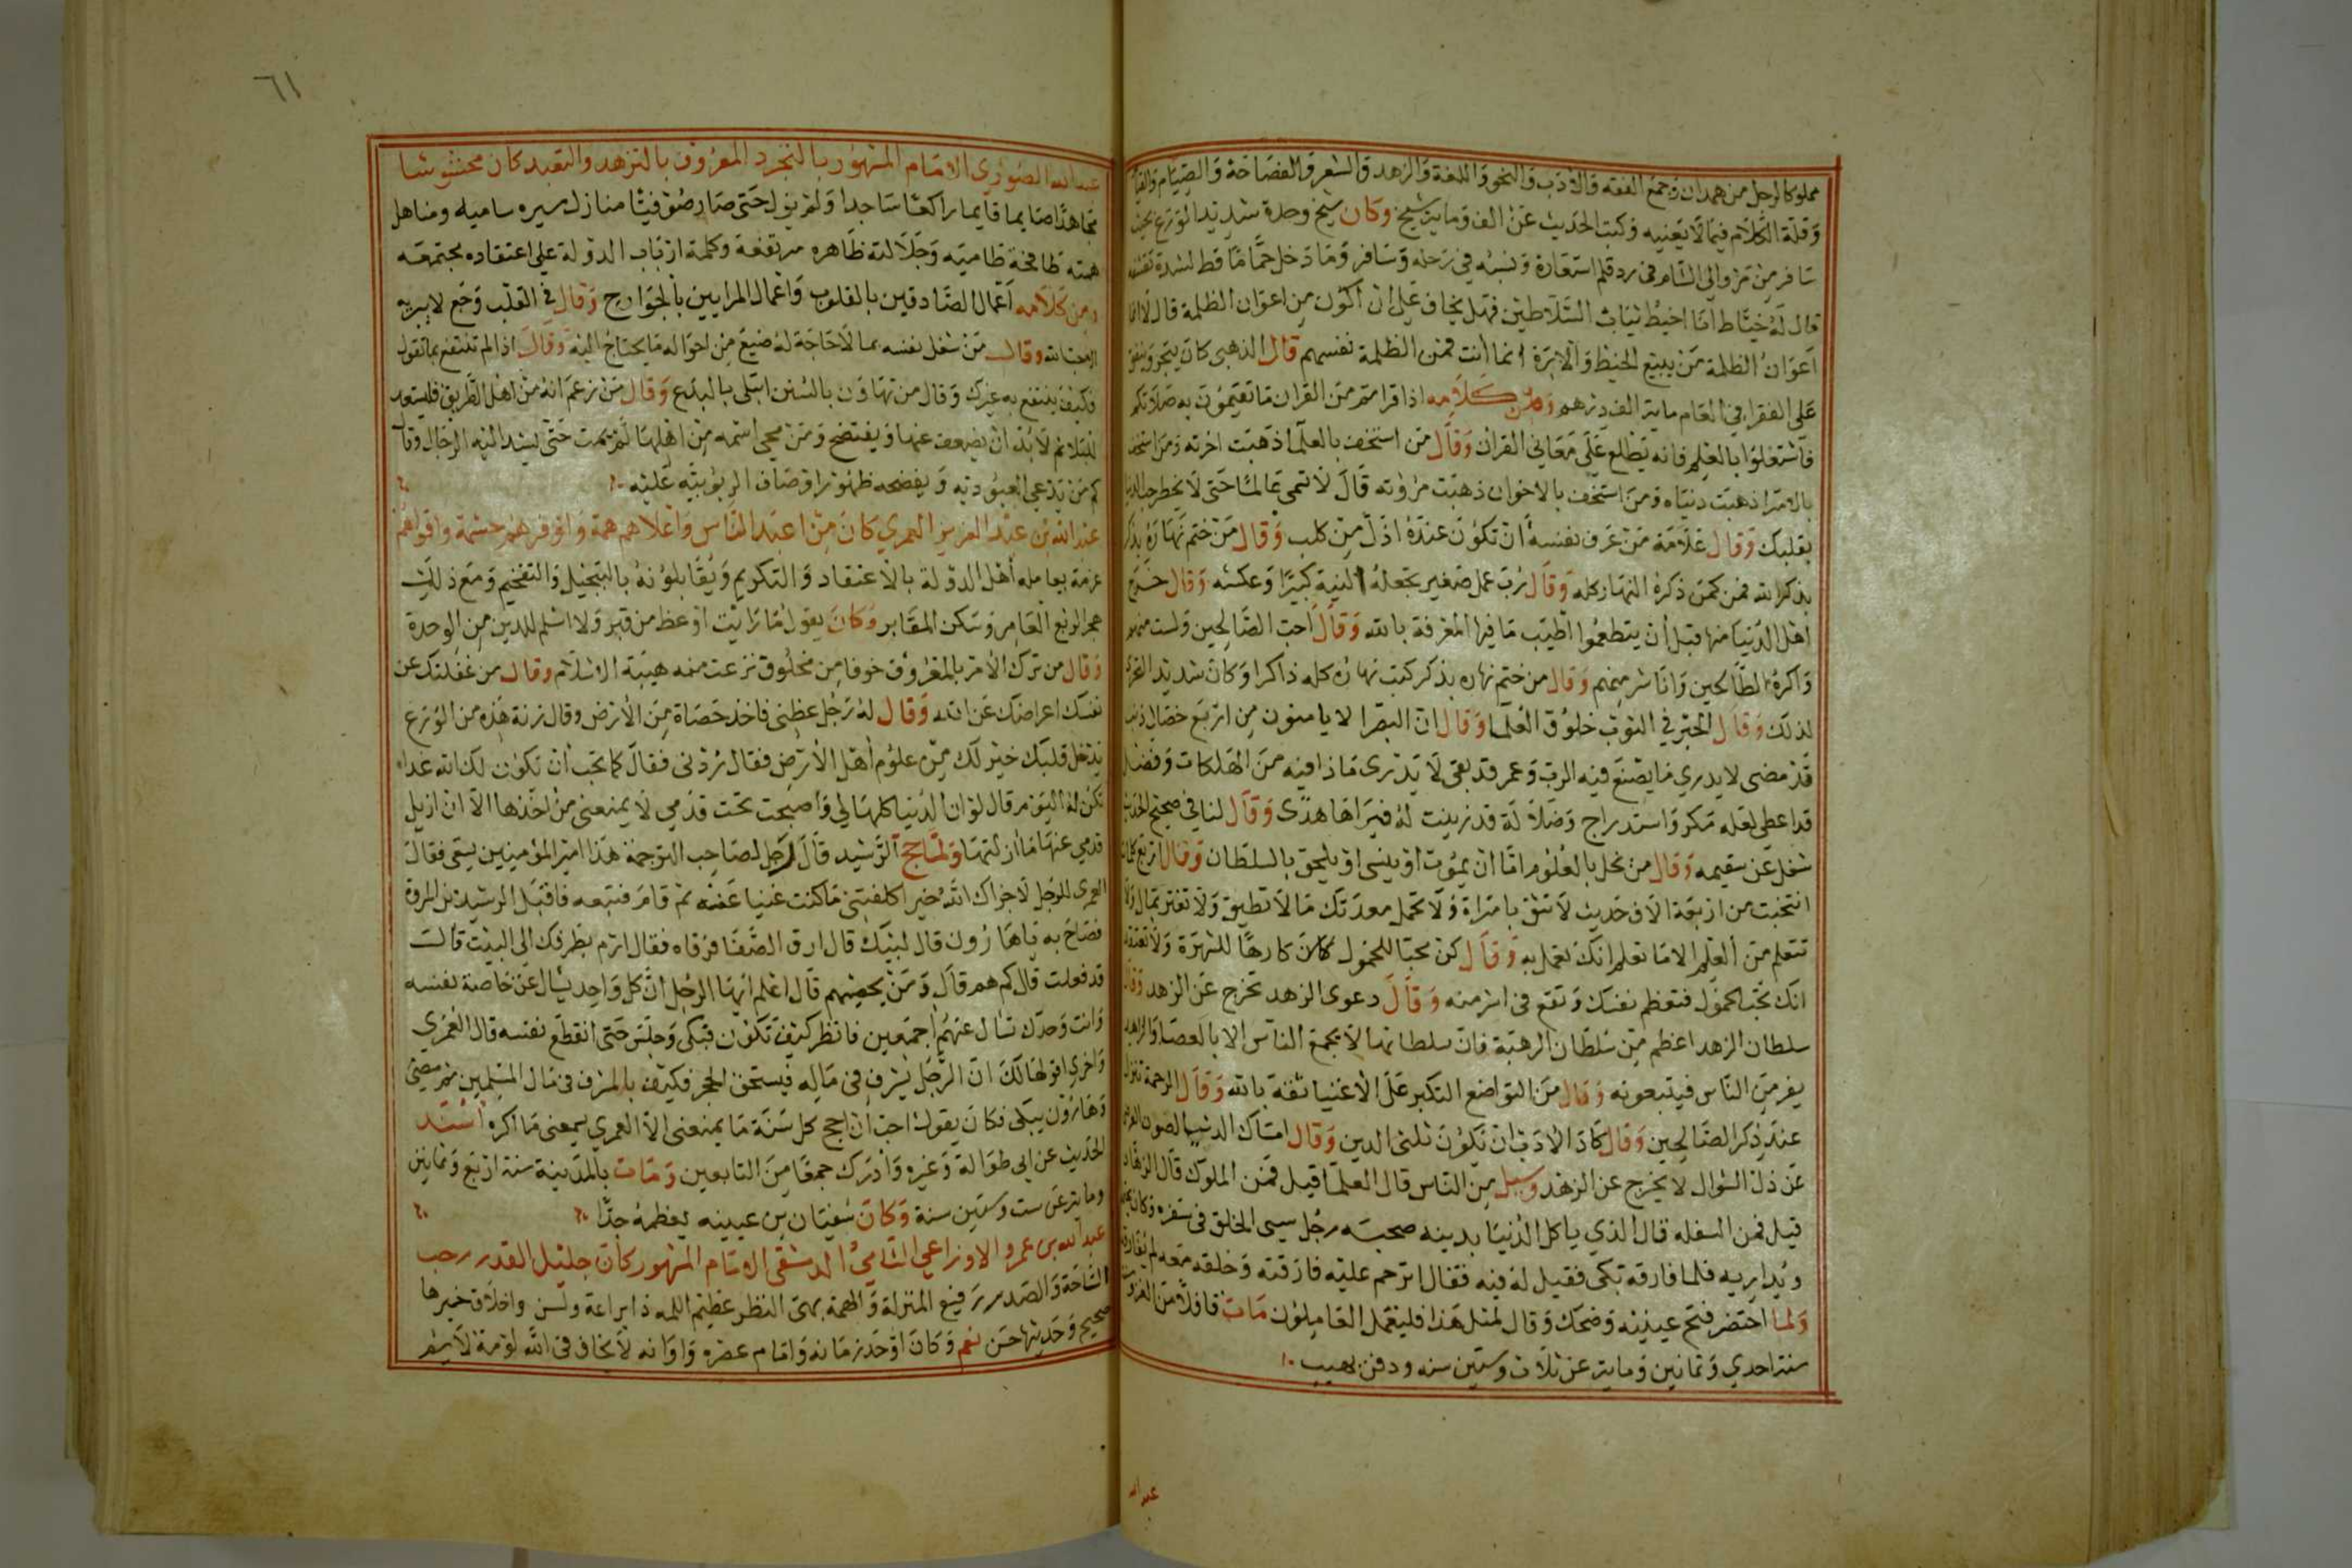 مملوكا لرجل من همدان وجمع الفقه والادب والنحو واللغة والزهد والشعر والفصاحة والصيام والقيام
وقلة الكلام فيما لا يعنيه وكتب الحديث عن الف ومايتي شيخ وكان سيخ وحده شديد الورع بحيث
سافر من مرو الى الشام في رد قلم استعاره ونسيه في رحله وسافر وما دخل حماما قط لشدة تقشفه
قال له خياط انا اخيط ثياب السلاطين فهل يخاف علي ان اكون من اعوان الظلمة قال لا انما
اعوان الظلمة من يبيع الخيط والابرة انما انت فمن الظلمة نفسهم قال الذهبي كان يتجر وينفق
على الفقرا في العام ماية الف درهم ومن كلامه اذا قراتم من القران ما تقيمون به صلاتكم
فاشتغلوا بالعلم فانه تطلع على معاني القران وقال من استخف بالعلما ذهبت اخرته ومن استخف
بالامرا ذهبت دنياه ومن استخف بالاخوان ذهبت مروته قال لا تسمى عالما حتى لا يخطر حب الدنيا
بقلبك وقال علامة من عرف نفسه ان تكون عنده اذل من كلب وقال من ختم نهاره بذكر
بذكر الله فمن كمن ذكره النهار كله وقال رب عمل صغير تجعله النية كبيرا وعكسه وقال خرج
اهل الدنيا منها قبل ان يتطعموا اطيب ما فيها المعرفة بالله وقال احب الصالحين ولست منهم
واكره الطالحين وانا شر منهم وقال من ختم نهاره بذكر كتب نهاره كله ذاكرا وكان شديد التحري
لذلك وقال الحبر في الثوب خلوق العلما وقال ان البصرا لا يامنون من اربع خصال ذنب
قد مضى لا يدري ما يصنع فيه الرب وعمر قد بقى لا يدري ماذا فيه من الهلكات وفضل
قد اعطى لعله مكر واستدراج وضلالة قد زينت له فيراها هدى وقال لنا في صحيح الحديث
شغل عن سقيمه وقال من بخل بالعلوم اما ان يموت او ينسى او يلحق بالسلطان وقال اربع كلمات
انتخبت من اربعة الاف حديث لا تثق بامراة ولا تحمل معدتك ما لا تطيق ولا تغتر بمال ولا
تتعلم من العلم الا ما تعلم انك تعمل به وقال كن محبا للخمول كارها للشهرة ولا تعتقد
انك تحب الخمول فتعظم نفسك وتقع في اشر منه وقال دعوى الزهد تخرج عن الزهد وقال
سلطان الزهد اعظم من سلطان الرهبة فان سلطانها لا يجمع الناس الا بالعصا والزاهد
يفر من الناس فيتبعونه وقال من التواضع التكبر على الاغنيا ثقة بالله وقال الرحمة تنزل
عند ذكر الصالحين وقال كاد الادب ان تكون ثلثى الدين وقال امساك الدنيا لصون العرض
عن ذل السوال لا يخرج عن الزهد وسيل من الناس قال العلما قيل فمن الملوك قال الزهاد
قيل فمن السفله قال الذي ياكل الدنيا بدينه صحبه رجل سيى الخلق في سفره وكان يحتمله
ويداريه فلما فارقه بكى فقيل له فيه فقال اترحم عليه فارقته وخلقه معه لم يفارقه
ولما احتضر فتح عينيه وضحك وقال لمثل هذا فليعمل العاملون مات قافلا من الغزو
سنة احدي وثمانين وماية عن ثلاث وستين سنه ودفن بهيت
عبد الله
٦١
عبد الله الصوري الامام المشهور بالتجرد المعروف بالتزهد والتعبد كان مخشوشنا
مجاهدا صايما قايما راكعا ساجدا ولم يزل حتى صار صوفيا منازل سيره ساميه ومناهل
همته طافحة طاميه وجلالته ظاهره مرتفعة وكلمة ارباب الدولة على اعتقاده مجتمعه
ومن كلامه اعمال الصادقين بالقلوب واعمال المرايين بالجوارح وقال في القلب وجع لا يبريه
الا حب الله وقال من شغل نفسه بما لا حاجة له ضيع من احواله ما يحتاج اليه وقال اذا لم تنتفع بما تقول
فكيف ينتفع به غيرك وقال من تهاون بالسنن ابتلى بالبدع وقال من زعم انه من اهل الطريق فليستعد
للبلا ثم لا بد ان يضعف عنها ويفتضح ومن محي اسمه من اهلها لم يمت حتى يشد اليه الرحال وقال
كم من يدعي العبودية ويفضحه ظهور اوصاف الربوبية عليه
عبد الله بن عبد العزيز العمري كان من اعبد الناس واعلاهم همة واوفرهم حشمة واقواهم
عزمة يعامله اهل الدولة بالاعتقاد والتكريم ويقابلونه بالتبجيل والتفخيم ومع ذلك
هجر الربع العامر وسكن المقابر وكان يقول ما رايت اوعظ من قبر ولا اسلم للدين من الوحدة
وقال من ترك الامر بالمعروف خوفا من مخلوق نزعت منه هيبة الاسلام وقال من غفلتك عن
نفسك اعراضك عن الله وقال له رجل عظني فاخذ حصاة من الارض وقال زنة هذه من الورع
يدخل قلبك خير لك من علوم اهل الارض فقال زدني فقال كما تحب ان تكون لك الله غدا
تكن له اليوم قال لو ان الدنيا كلها لي واصبحت تحت قدمي لا يمنعني من اخذها الا ان ازيل
قدمي عنها ما ازلتها ولما حج الرشيد قال رجل لصاحب الترجمة هذا امير المومنين يسعى فقال
العمري للرجل لا جزاك الله خيرا كلفتني ما كنت غنيا عنه ثم قام فتبعه فاقبل الرشيد من المروة
فصاح به ياهارون قال لبيك قال ارق الصفا فرقاه فقال ارم بطرفك الى البيت قال
قد فعلت قال كم هم قال ومن يحصيهم قال اعلم ايها الرجل ان كل واحد يسال عن خاصة نفسه
وانت وحدك تسال عنهم اجمعين فانظر كيف تكون فبكى وجلس حتى انقطع نفسه قال العمري
واخرى اقولها لك ان الرجل يسرف في ماله فيستحق الحجر فكيف بالمسرف في مال المسلمين ثم مضى
وهارون يبكى فكان يقول احب ان احج كل سنة ما يمنعني الا العمري يسمعني ما اكره اسند
الحديث عن ابي طوالة وغيره وادرك جمعا من التابعين ومات بالمدينة سنة اربع وثمانين
وماية عن ست وستين سنة وكان سفيان بن عيينه يعظمه جدا
عبد الله بن عمرو الاوزاعي الشامي الدمشقي الامام المشهور كان جليل القدر رحب
الساحة والصدر رفيع المنزلة والهمة بهي النظر عظيم اللمه ذا براعة ولسن واخلاق خيرها
صحيح وحديثها حسن نعم وكان اوحد زمانه وامام عصره واوانه لا يخاف في الله لومة لايم